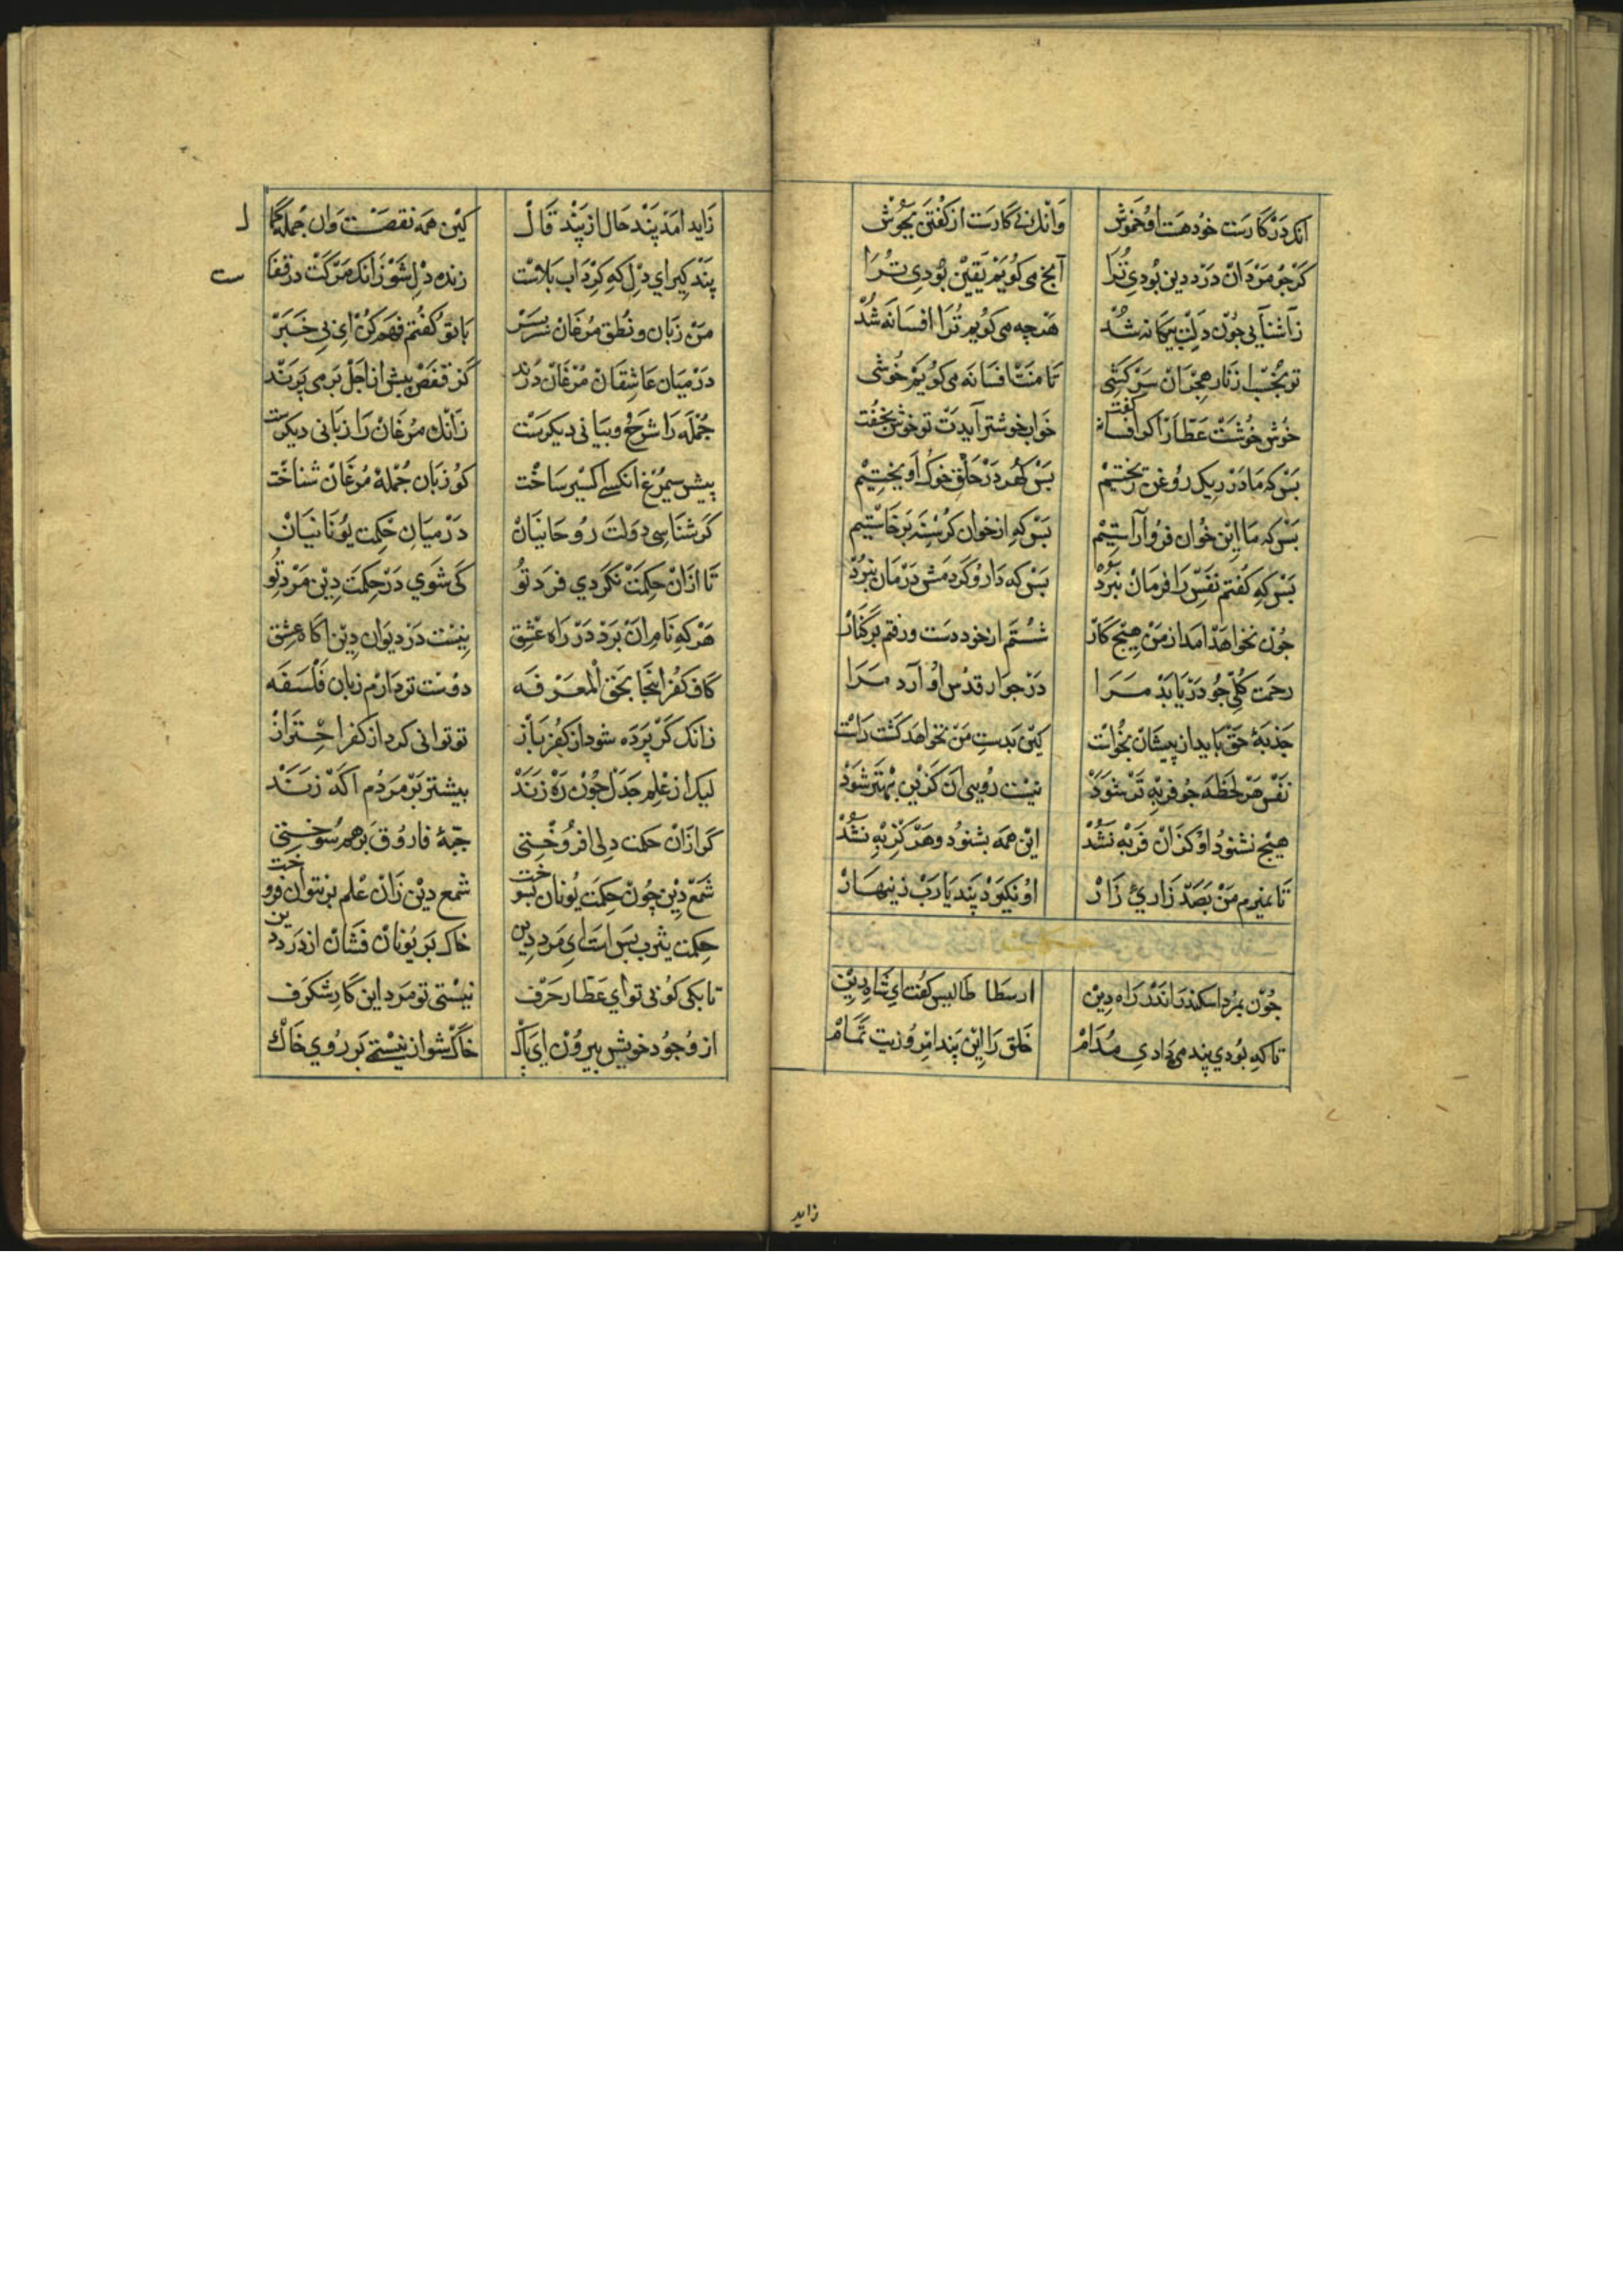 انک در کارست خود هست او خموش وانک نی کارست از گفتن بجوش
کر جو مردان درد دین بودی ترا آنج می کویم یقین بودی ترا
زآشنایی جون دلت بیکانه شد هرچه می کویم ترا افسانه شد
تو بخسب از ناز همجون سرکشی تا منت افسانه می کویم خوشی
خوش خوشت عطار اکر افسانه گفت خواب خوشتر آیدت تو خوش بخفت
بس که ما در ریک روغن ریختیم بس کهر در حلق خوک آویختیم
بس که ما این خوان فرو آراستیم بس که از خوان کرسنه برخاستیم
بس که کفتم نفس را فرمان نبرد بس که دارو کردمش درمان نبرد
جون نخواهد امد از من هیج کار شستم از خود دست و رفتم بر کنار
رحمت کلی جو دریابد مرا در جوار قدس او آرد مرا
جذبه حق باید از پیشان بخواست کین بدست من نخواهد کشت راست
نفس هر لحظه جو فربه تر شود نیست روی آن کزین بهتر شود
هیج نشنود او کزان فربه نشد این همه بشنود و هرکز به نشد
تا نمیرم من بصد زاری زار او نکیرد پند یا رب زینهار
جون بمرد اسکندر اندر راه دین ارسطاطالیس کفت ای شاه دین
تا که بودی پند می دادی مدام خلق را این پند امروزیت تمام
زاید
زاید امد پند حال از پند قال کین همه نقصست وان جمله کمال
پند کیر ای دل که کرداب بلاست زنده دل شو زانک مرکت در قفاست
من زبان و نطق مرغان سربسر با تو کفتم فهم کن ای بی خبر
در میان عاشقان مرغان درند کز قفص پیش از اجل بر می پرند
جمله را شرح و بیانی دیکرست زانک مرغان را زبانی دیکرست
پیش سیمرغ انکسی اکسیر ساخت کو زبان جمله مرغان شناخت
کر شناسی دولت روحانیان در میان حکمت یونانیان
تا ازان حکمت نکردی فرد تو کی شوی در حکمت دین مرد تو
هر که نام ان برد در راه عشق نیست در دیوان دین آکاه عشق
کاف کفر اینجا بحق المعرفه دوست تر دارم زبان فلسفه
زانک کر پرده شود از کفر باز تو توانی کرد از کفر احتراز
لیک از علم جدل جون ره زند بیشتر بر مردم آکه زند
کر ازان حکمت دلی افروختی جبه فاروق برهم سوختی
شمع دین چون حکمت یونان بسوخت شمع دین زان علم بر نتوان فروخت
حکمت یثرب بس است ای مرد دین خاک بر یونان فشان از درد دین
تا بکی کوئی تو ای عطار حرف نیستی تو مرد این کار شکرف
از وجود خویش بیرون ای پاک خاک شو از نیستی بر روی خاک